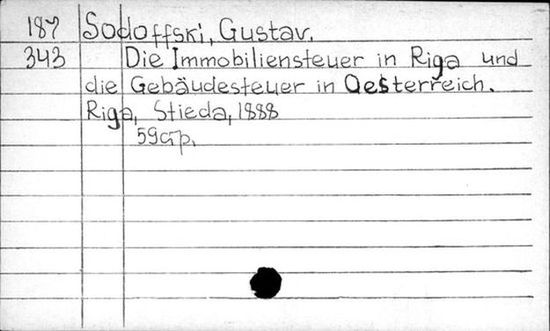 187 Sodoffski, Gustav.
343 Die Immobiliensteuer in Riga und
die Gebäudesteuer in Oesterreich.
Riga, Stieda, 1888
59